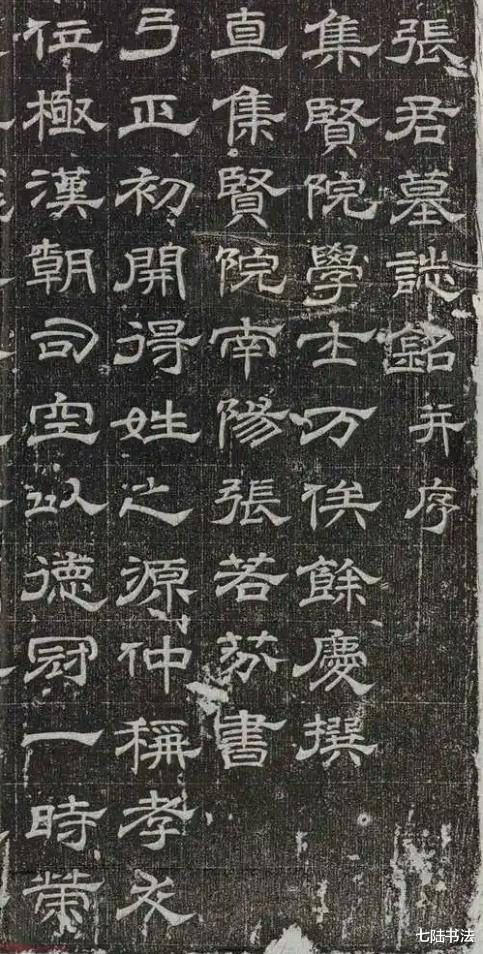 張君墓誌銘并序
集賢院學士万俟餘慶撰
直集賢院南陽張若芬書
弓正初開得姓之源仲稱孝友
位極漢朝司空以德冠一時榮
七陆书法